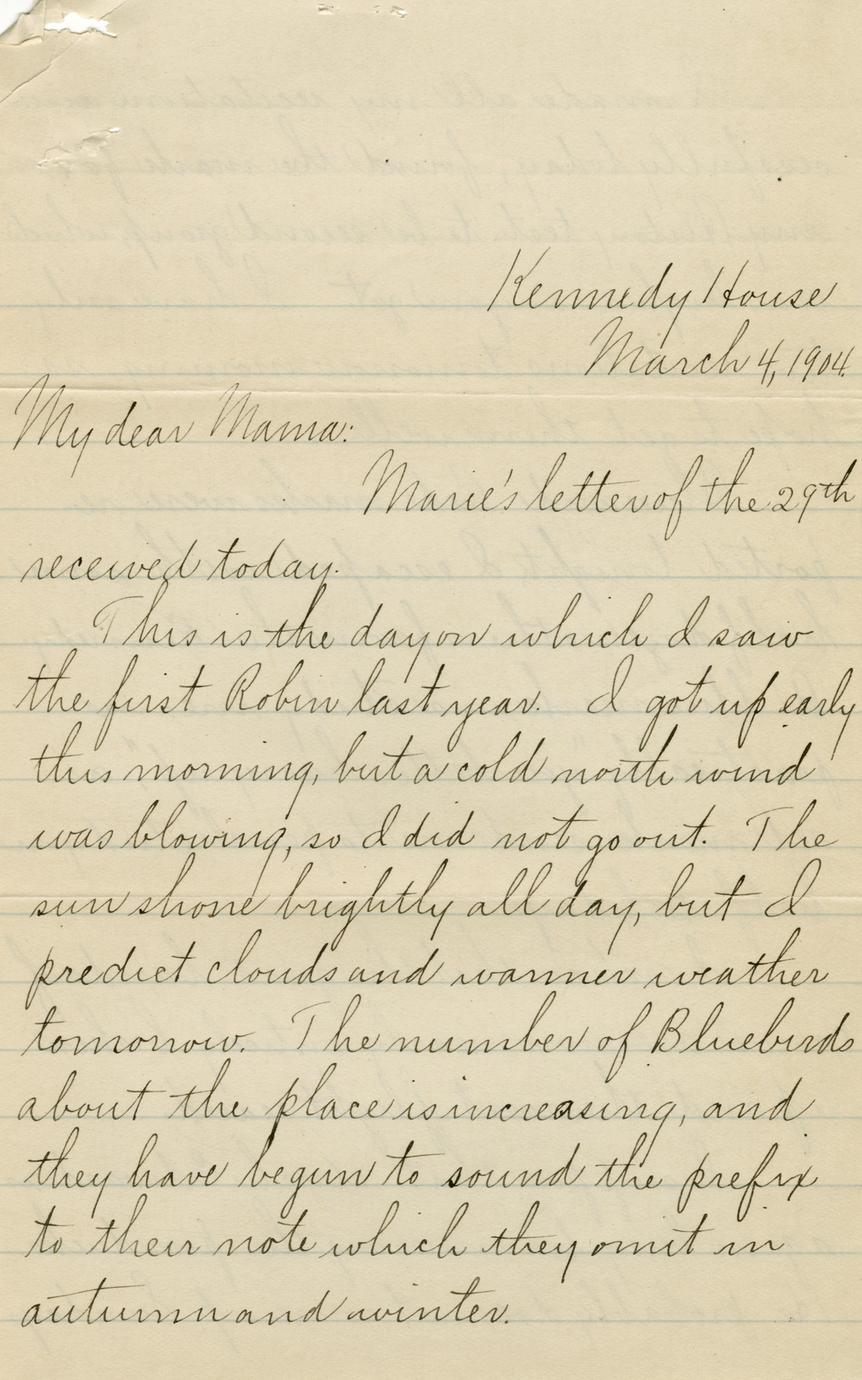 Kennedy House
March 4, 1904.
My dear Mama:
Marie's letter of the 29th
received today.
This is the day on which I saw
the first Robin last year. I got up early
this morning, but a cold north wind
was blowing, so I did not go out. The
sun shone brightly all day, but I
predict clouds and warmer weather
tomorrow. The number of Bluebirds
about the place is increasing, and
they have begun to sound the prefix
to their note which they omit in
autumn and winter.